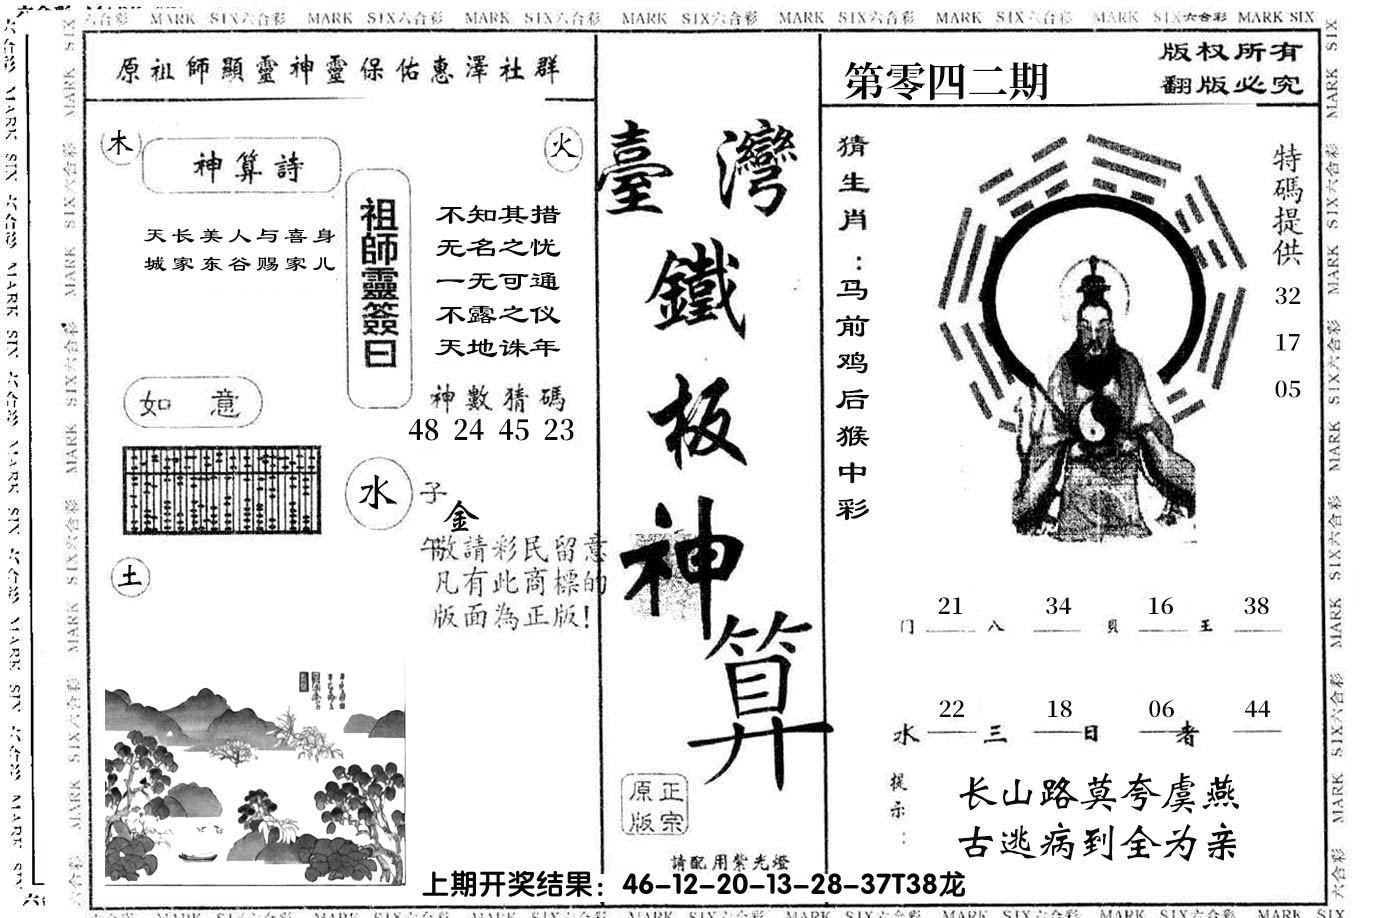 六合彩 MARK SIX六合彩 MARK SIX六合彩 MARK SIX六合彩 MARK SIX六合彩 MARK SIX六合彩 MARK SIX六合彩 MARK SIX六合彩 MARK SIX
原祖師顯靈神靈保佑惠澤社群
木
神算詩
火
天长美人与喜身
城家东谷赐家儿
祖師靈簽曰
不知其措
无名之忧
一无可通
不露之仪
天地诛年
神數猜碼
48 24 45 23
如 意
水
子
金
午
敬請彩民留意
凡有此商標的
版面為正版!
土
臺灣
鐵
板
神
算
正宗
原版
請配用紫光燈
第零四二期
版权所有
翻版必究
猜生肖:马前鸡后猴中彩
特碼提供
32
17
05
21 34 16 38
门 八 贝 王
22 18 06 44
水 三 日 者
提示:
长山路莫夸虞燕
古逃病到全为亲
上期开奖结果：46-12-20-13-28-37T38龙